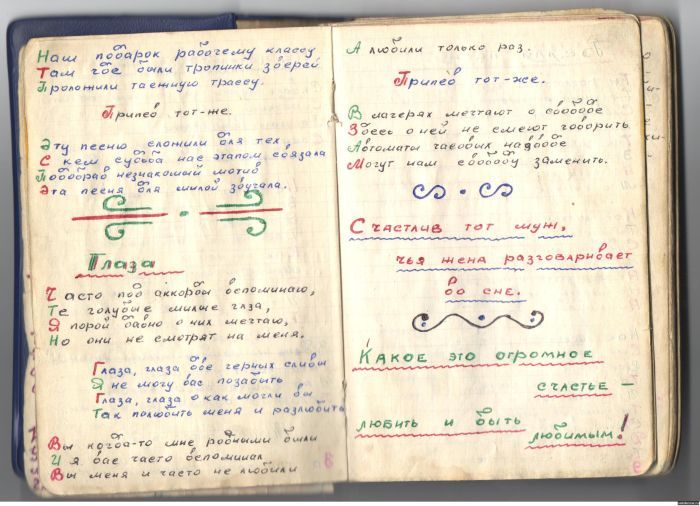 Наш подарок рабочему классу
Там где были тропинки зверей
Проложили таежную трассу.
Припев тот-же.
Эту песню сложили для тех
С кем судьба нас этапом связала
Подобрав незнакомый мотив
Эта песня для милой звучала.
Глаза
Часто под аккорды вспоминаю,
Те голубые милые глза,
Я порой давно о них мечтаю,
Но они не смотрят на меня.
Глаза, глаза две черных сливы
Я не могу вас позабыть
Глаза, глаза о как могли вы
Так полюбить меня и разлюбить
Вы когда-то мне родными были
И я вас часто вспоминал
Вы меня и часто не любили
А любили только раз.
Припев тот-же.
В лагерях мечтают о свободе
Здесь о ней не смеют говорить
Автоматы часовых на взводе
Могут нам свободу заменить.
Счастлив тот муж,
чья жена разговаривает
во сне.
Какое это огромное
счастье –
любить и быть
любимым!